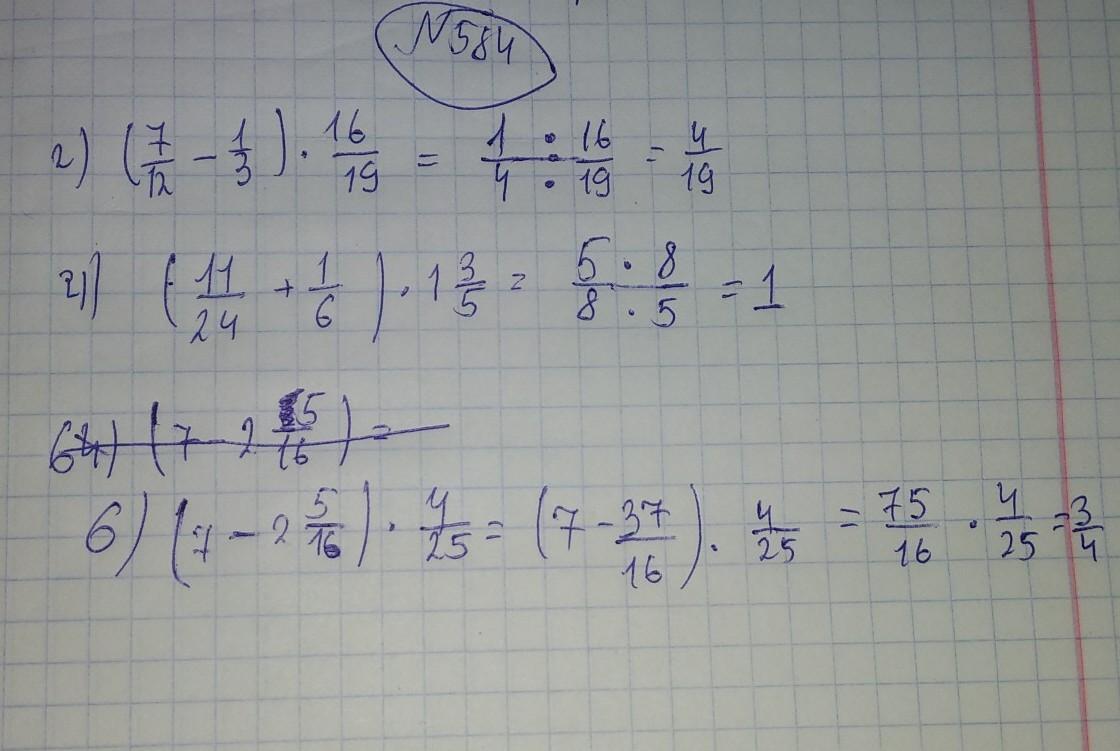 N584
2) (7/12 - 1/3) · 16/19 = 1/4 · 16/19 = 4/19
4) (11/24 + 1/6) · 1 3/5 = 5 · 8/8 · 5 = 1
64) (7 - 2 5/16) =
6) (7 - 2 5/16) · 4/25 = (7 - 37/16) · 4/25 = 75/16 · 4/25 = 3/4